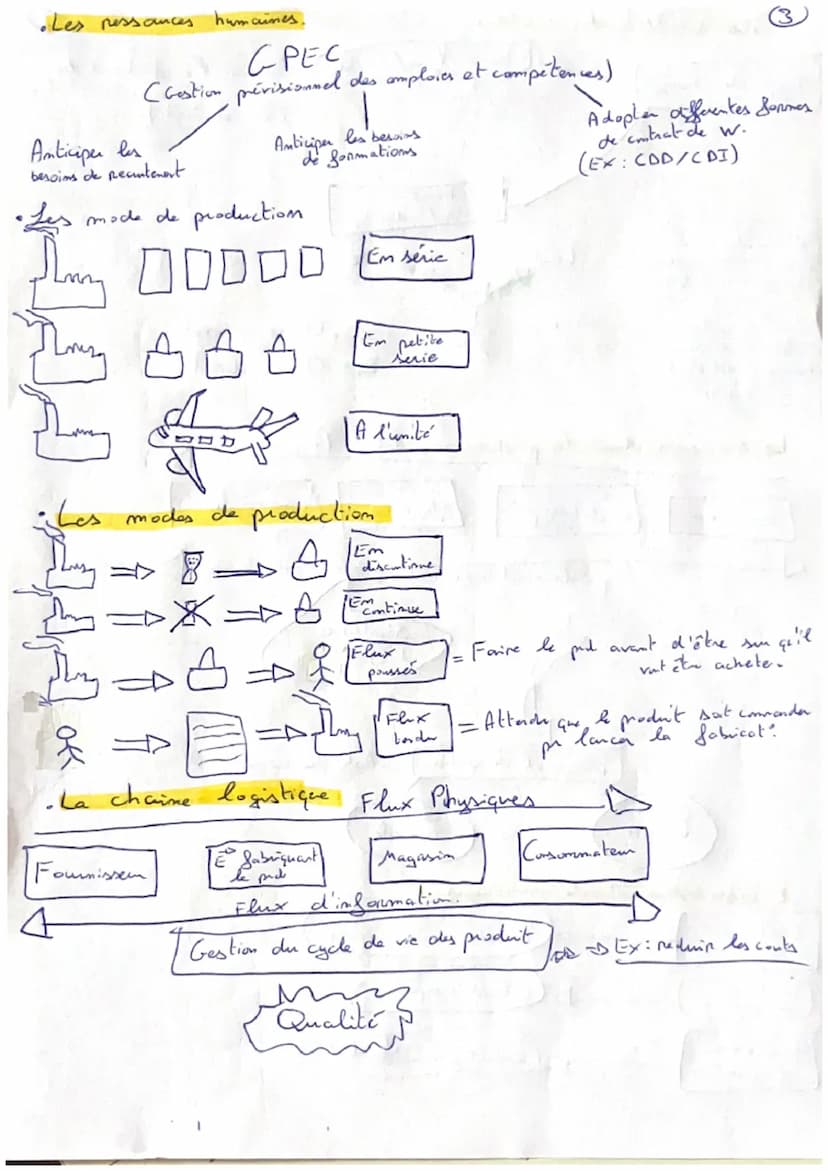 ③
. Les ressources humaines.
GPEC
(Gestion prévisionnel des emploies et compétences)
Anticiper les
besoins de recrutement
Anticiper les besoins
de formations
Adopter différentes formes
de contrat de W.
(Ex : CDD/CDI)
• Les mode de production
En série
En petite
serie
A l'unité
• Les modes de production
En
discontinue
En
continue
Flux
poussés
= Faire le pd avant d'être sur qu'il
va être acheter.
Flux
= Attendre que le produit soit commander
pr lancer la fabricat°.
. La chaine logistique
Flux Physiques
Fournisseur
E° fabriquant
le pd
Magasin
Consommateur
Flux d'information.
Gestion du cycle de vie des produit
⇒ Ex : reduir les couts
Qualité